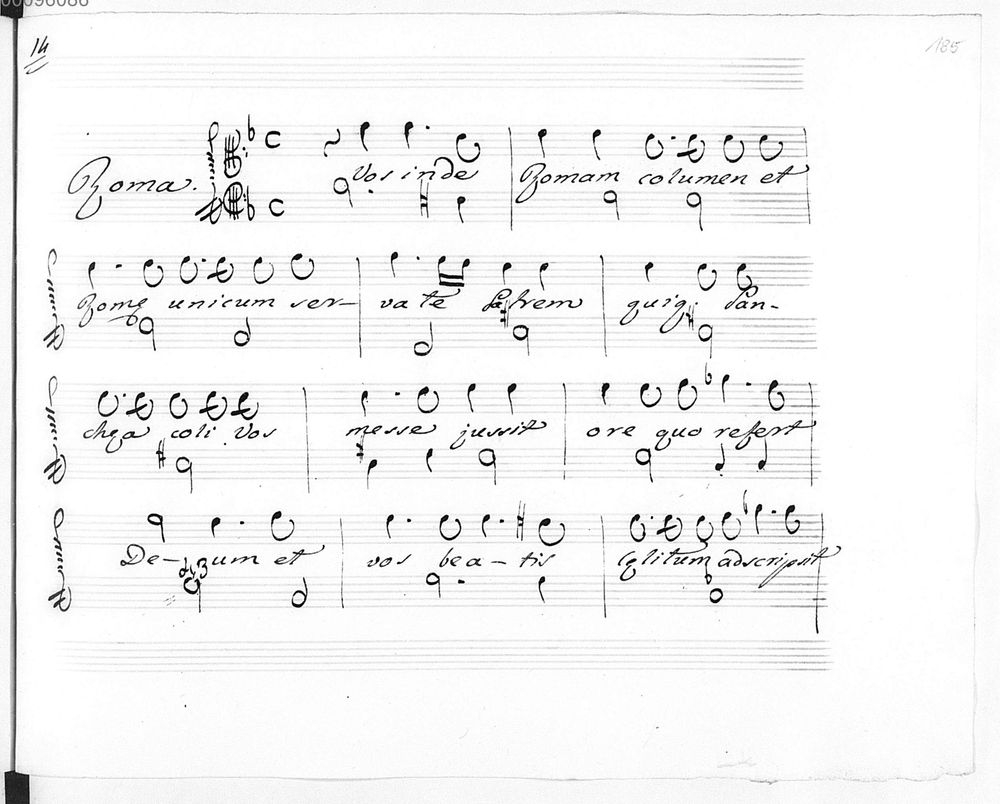 00096086
14
185
Roma. Vos inde Romam columen et
Romę unicum ser-vate Patrem quiq; San-
chęa coli Vos messe jussit ore quo refert
De-um et vos bea-tis cęlitum adscripsit